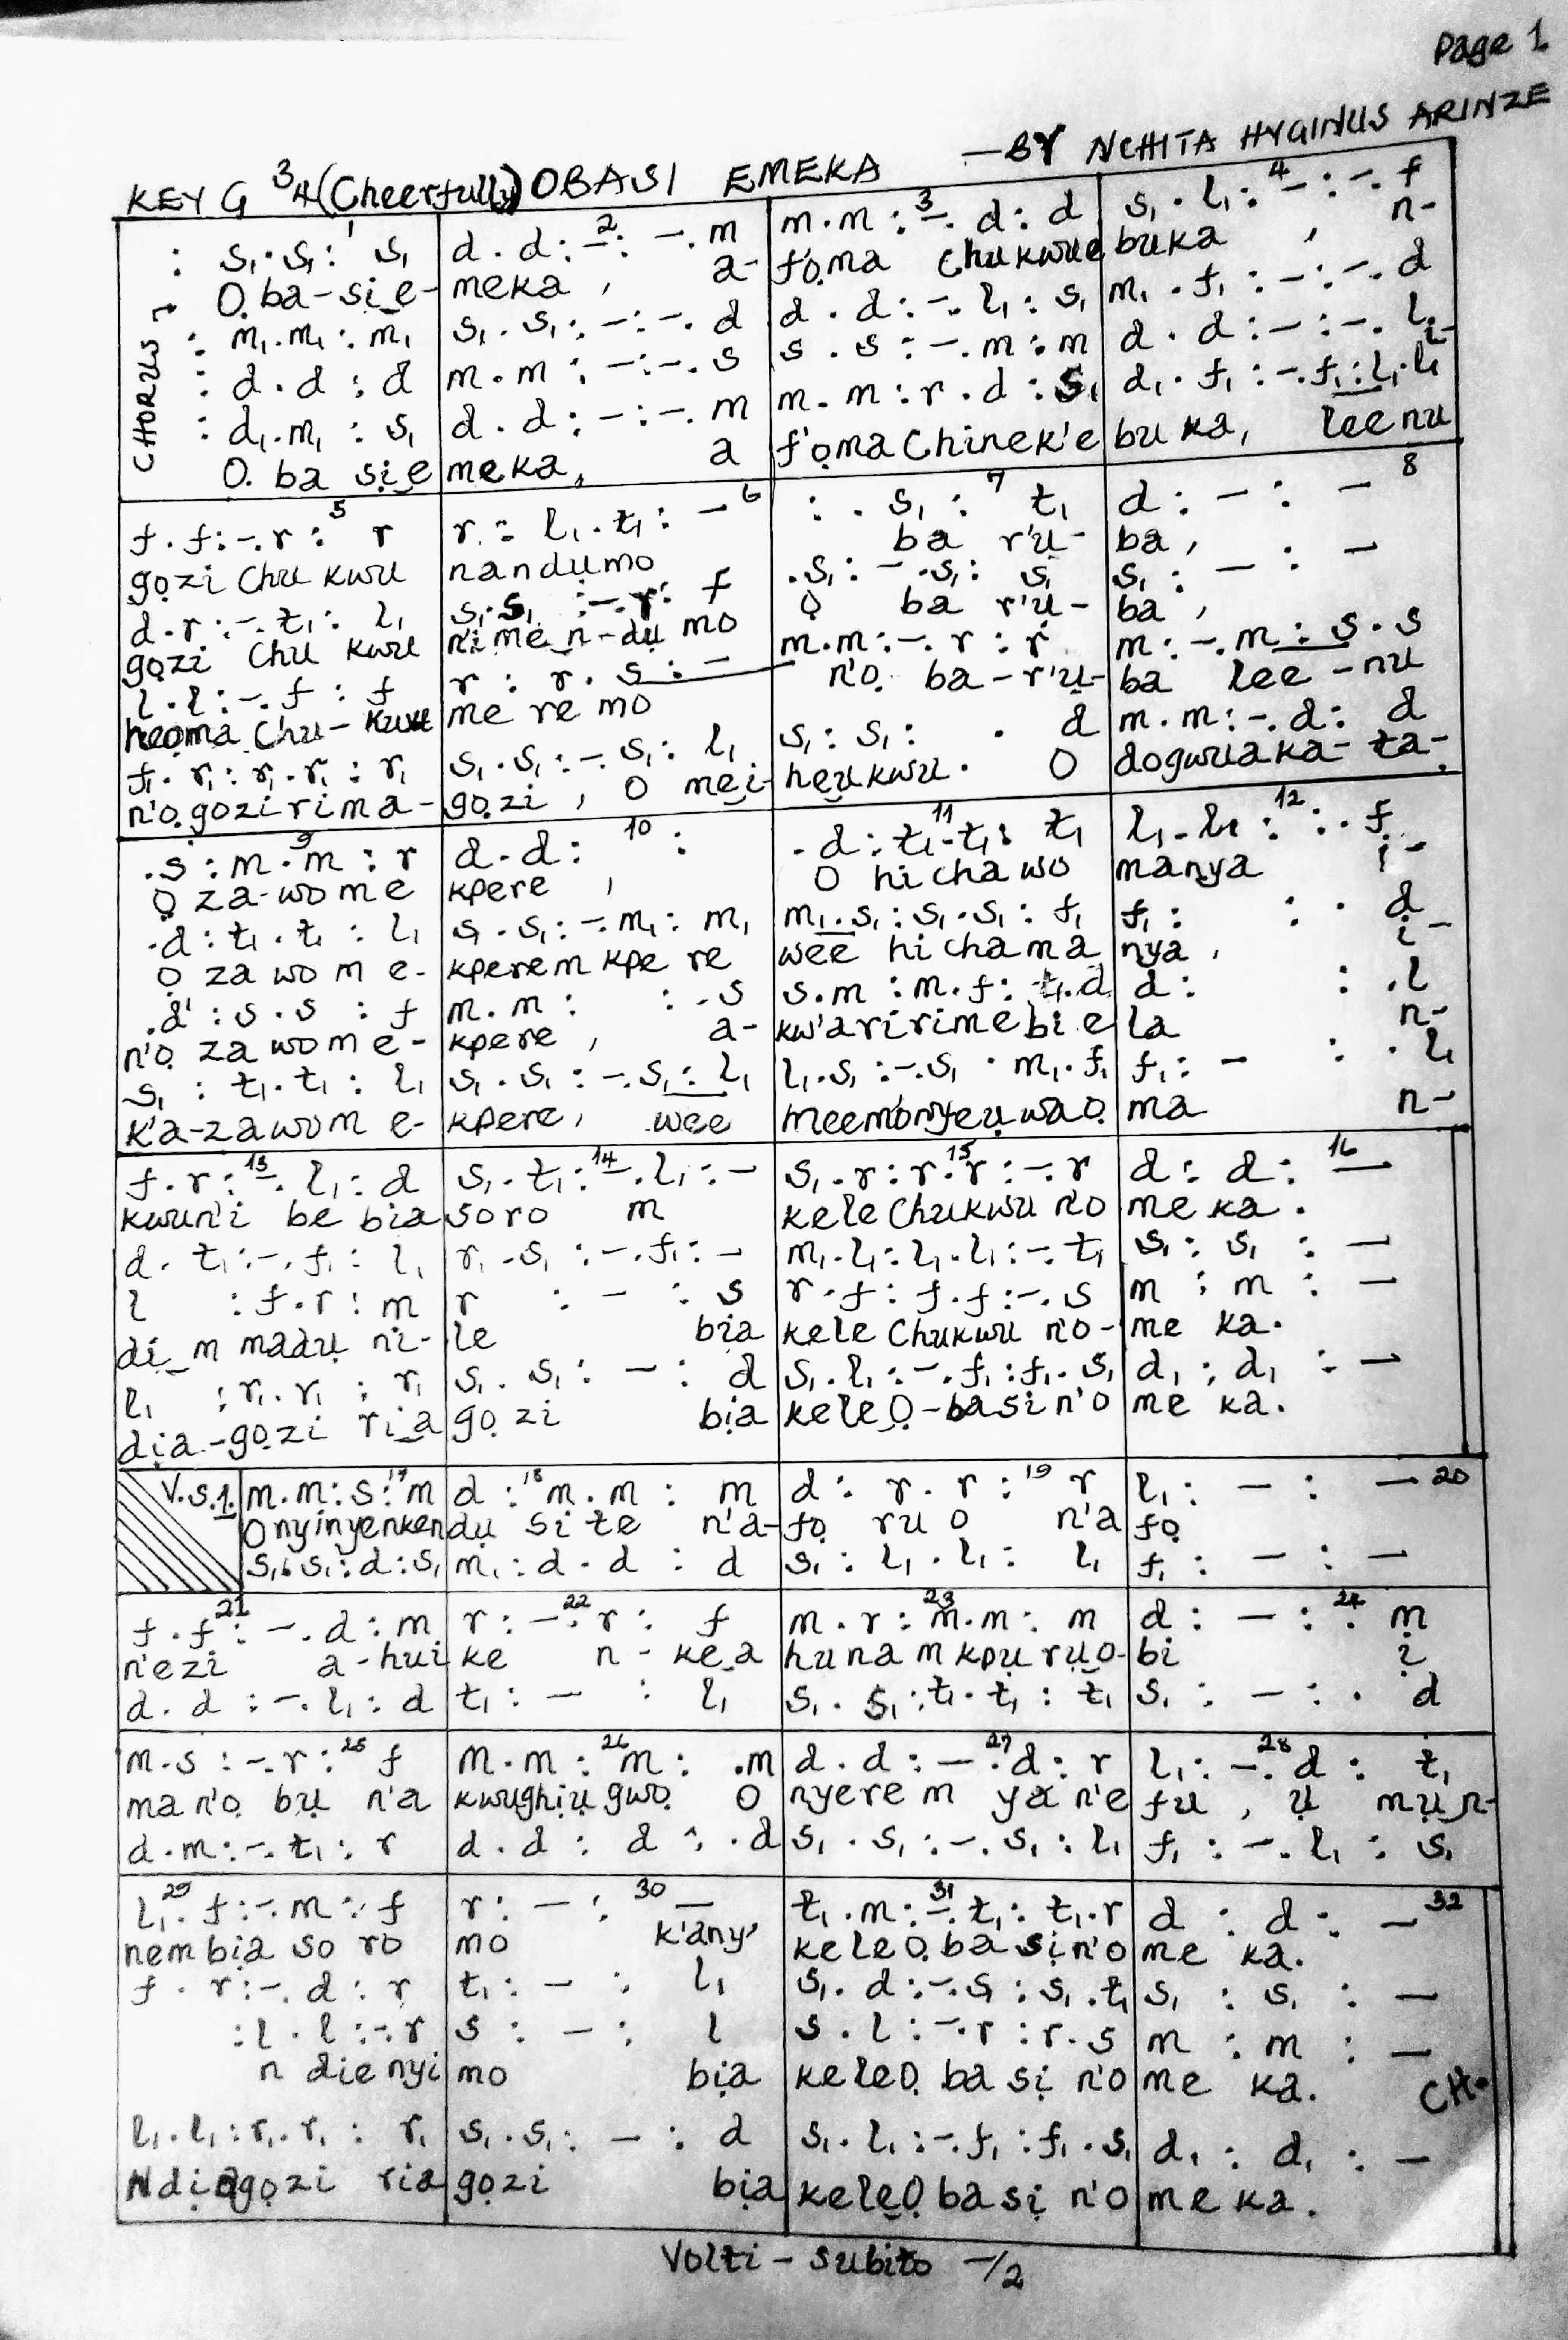 Page 1
—BY NCHITA HYGINUS ARINZE
KEY G 3/4 (Cheerfully) OBASI EMEKA
CHORUS
: s₁.s₁: s₁ | d.d: — : —. m | m.m: —. d: d | s₁.l₁: — : —. f
1 2 3 4
Ọ.ba-sị_e- | meka, a- | fọ.ma Chukwue | buka, n-
: m₁.m₁: m₁ | s₁.s₁: — : —. d | d.d: —. l₁: s₁ | m₁.f₁: — : —. d
: d.d: d | m.m: — : —. s | s.s: —. m: m | d.d: — : —. l₁
: d₁.m₁: s₁ | d.d: — : —. m | m.m: r.d: s₁ | d₁.f₁: —. f₁: l₁.l₁
Ọ. ba sị_e | meka, a | f'ọma Chinek'e | bu ka, lee nu
5 6 7 8
f.f: —. r: r | r: l₁.t₁: — | : . s₁: t₁ | d: — : —
gọzi Chu kwu | nandụmo | ba r'ụ- | ba,
d.r: —. t₁: l₁ | s₁.s₁: —. r: f | .s₁: —.s₁: s₁ | s₁: — : —
gọzi Chu kwu | n'ime n-dụ mo | Ọ ba r'ụ- | ba,
l.l: —. f: f | r: r.s: — | m.m: —. r: r | m: —. m: s.s
heọma Chu-kwu | me re mo | n'ọ. ba-r'ụ- | ba lee-nu
f.r₁: r₁.r₁: r₁ | s₁.s₁: —. s₁: l₁ | s₁: s₁: . d | m.m: —. d: d
n'ọ.gozirima- | gọzi, O mei- | heukwu. O | dogwuaka-ta-
9 10 11 12
.s: m.m: r | d.d: : | .d: t₁.t₁: t₁ | l₁.l₁: : . f
Ọ za-wo me | kpere, | O hi cha wo | manya i-
.d: t₁.t₁: l₁ | s₁.s₁: —. m₁: m₁ | m₁.s₁: s₁.s₁: f₁ | f₁: : . d
Ọ za wo m e- | kperem kpe re | wee hi chama | nya, i-
.d': s.s: f | m.m: : .s | s.m: m.f: t₁.d | d: : .l
n'ọ za wom e- | kpere, a- | kw'aririmebi e | la n-
s₁: t₁.t₁: l₁ | s₁.s₁: —. s₁: l₁ | l₁.s₁: —. s₁ . m₁.f₁ | f₁: — : . l₁
k'a-zawom e- | kpere, wee | meemọnyeụwaọ. | ma n-
13 14 15 16
f.r: —. l₁: d | s₁.t₁: —. l₁: — | s₁.r: r.r: —. r | d: d: —
kwuri be bia | soro m | kele Chukwu n'o | me ka.
d.t₁: —. f₁: l₁ | r₁.s₁: —. f₁: — | m₁.l₁: l₁.l₁: —. t₁ | s₁: s₁: —
l : f.r: m | r : — : s | r.f: f.f: —. s | m: m: —
dị_m madụ ni- | le bịa | kele Chukwu n'o- | me ka.
l₁ : r₁.r₁: r₁ | s₁.s₁: — : d | s₁.l₁: —. f₁: f₁.s₁ | d₁: d₁: —
dịa-gọzi rị_a | gọzi bịa | keleỌ-basi n'o | me ka.
17 18 19 20
V.S.1. m.m: s: m | d: m.m: m | d: r.r: r | l₁: — : —
Onyinyenken | dụ si te n'a- | fọ ru o n'a | fọ
s₁.s₁: d: s₁ | m₁: d.d: d | s₁: l₁.l₁: l₁ | f₁: — : —
21 22 23 24
f.f: —. d: m | r: —. r: f | m.r: m.m: m | d: — : . m
n'ezi a-hui | ke n-ke_a | huna m kpụ rụo- | bi ị
d.d: —. l₁: d | t₁: — : l₁ | s₁.s₁: t₁.t₁: t₁ | s₁: — : . d
25 26 27 28
m.s: —. r: f | m.m: m: .m | d.d: —. d: r | l₁: —. d: t₁
ma n'ọ. bụ n'a | kwughịụgwọ. O | nyere m ya n'e | fu, ụ mụn-
d.m: —. t₁: r | d.d: d: .d | s₁.s₁: —. s₁: l₁ | f₁: —. l₁: s₁
29 30 31 32
l₁.f: —. m: f | r: — : — | t₁.m: —. t₁: t₁.r | d: d: —
nem bia so ro | mo k'any' | keleỌ.basịn'o | me ka.
f.r: —. d: r | t₁: — : l₁ | s₁.d: —. s₁: s₁.t₁ | s₁: s₁: —
: l.l: —. r | s: — : l | s.l: —. r: r.s | m: m: —
n dienyi | mo bịa | keleỌ. ba sị n'o | me ka. CH.
l₁.l₁: r₁.r₁: r₁ | s₁.s₁: — : d | s₁.l₁: —. f₁: f₁.s₁ | d₁: d₁: —
Ndịagọzi ria | gọzi bịa | keleỌ ba sị n'o | me ka.
Volti - subito -/2